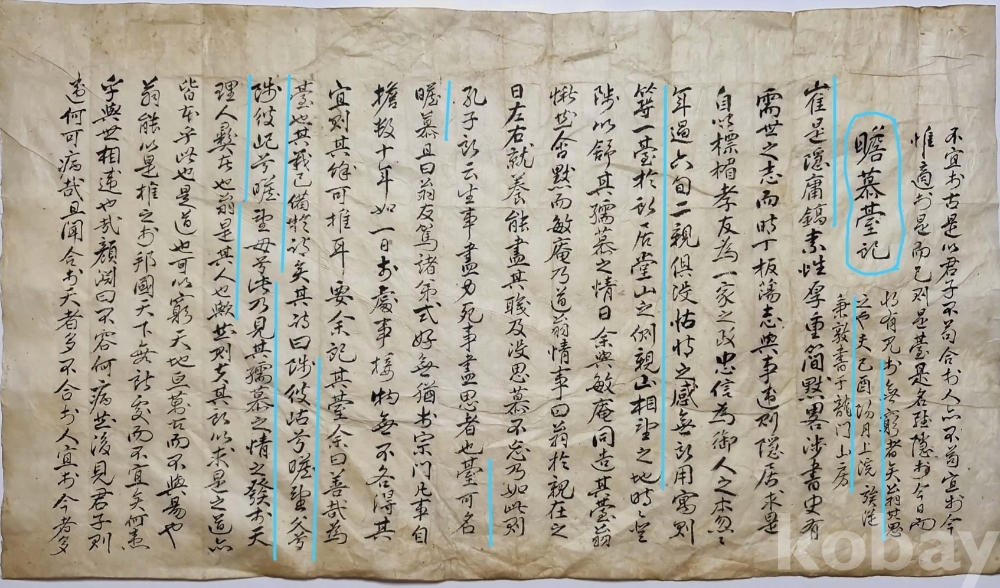 瞻慕臺記
崔是隱庸鎬素性厚重簡默畧涉書史有
需世之志而時丁板蕩志與事違則隱居求是
自以標楣孝友為一家之政忠信為御人之本忽〻
年過六旬二親俱沒怙恃之感無所用寓則
築一臺於所居堂山之側親山相望之地時〻登
陟以舒其孺慕之情日余與敏庵同造其臺翁
愀然含默而敏庵乃道翁情事曰翁於親在之
日左右就養能盡其職及沒思慕不忘乃如此則
孔子所云生事盡力死事盡思者也臺可名
瞻慕且曰翁友篤諸弟式好無猶於宗門凡事自
擔數十年如一日於處事接物無不各得其
宜則其餘可推耳要余記其臺余曰善哉為
臺也其義已備於詩矣其詩曰陟彼岵兮瞻望父兮
陟彼屺兮瞻望母兮此乃見其孺慕之情之發於天
理人彛者也翁是其人也歟然則夫其所以求是之道亦
皆本乎此也是道也可以窮天地亘萬古而不與易也
翁能以是推之於邦國天下無所處而不宜矣何患
乎與世相違也哉顏淵曰不容何病然後見君子則
違何可病哉且聞合於天者多不合於人宜於今者多
不宜於古是以君子不苟合於人亦不苟宜於今
惟適於是而已則是臺是名雖隱於今日而
將有見於無窮者矣翁其思
之也夫己酉陽月上浣 族從
兼敦書于龍門山房
kobay